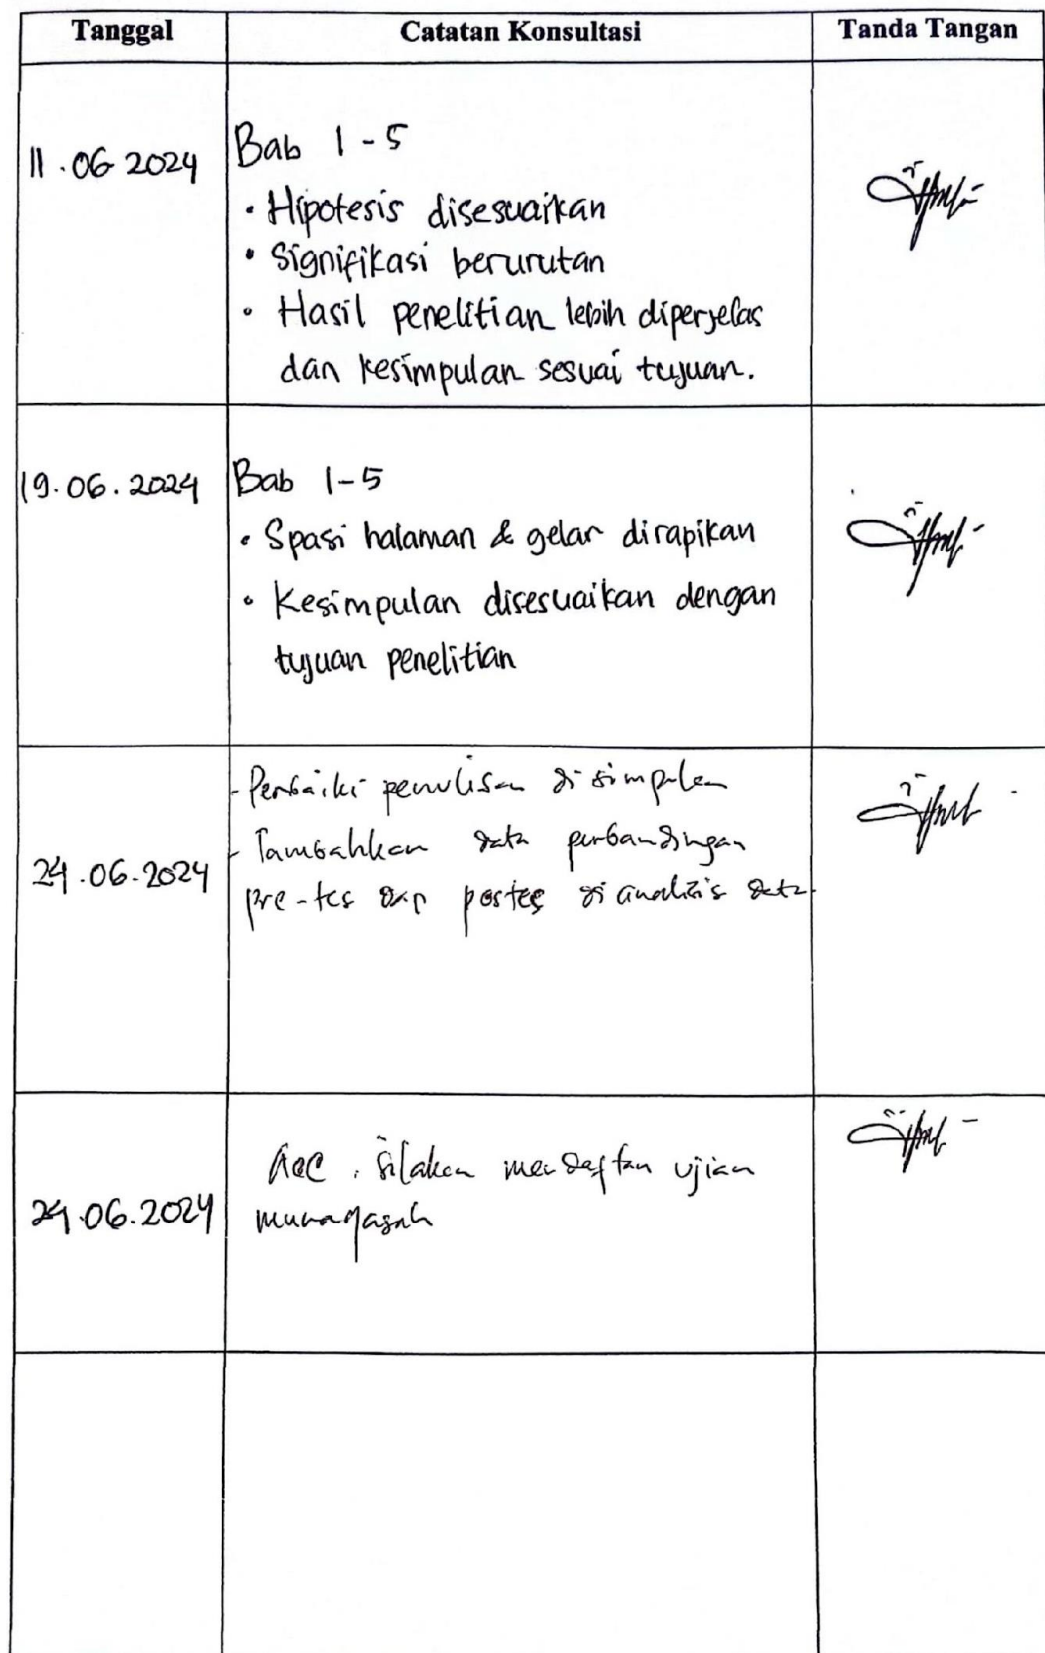 Tanggal Catatan Konsultasi Tanda Tangan
11.06 2024 Bab 1-5
• Hipotesis disesuaikan
• Signifikasi berurutan
• Hasil penelitian lebih diperjelas
dan kesimpulan sesuai tujuan.
19.06.2024 Bab 1-5
• Spasi halaman & gelar dirapikan
• Kesimpulan disesuaikan dengan
tujuan penelitian
24.06.2024
- Perbaiki penulisan di simpulan
- Tambahkan data perbandingan
pre-tes dan postes di analisis data
24.06.2024
ACC. silakan mendaftar ujian
munaqasah